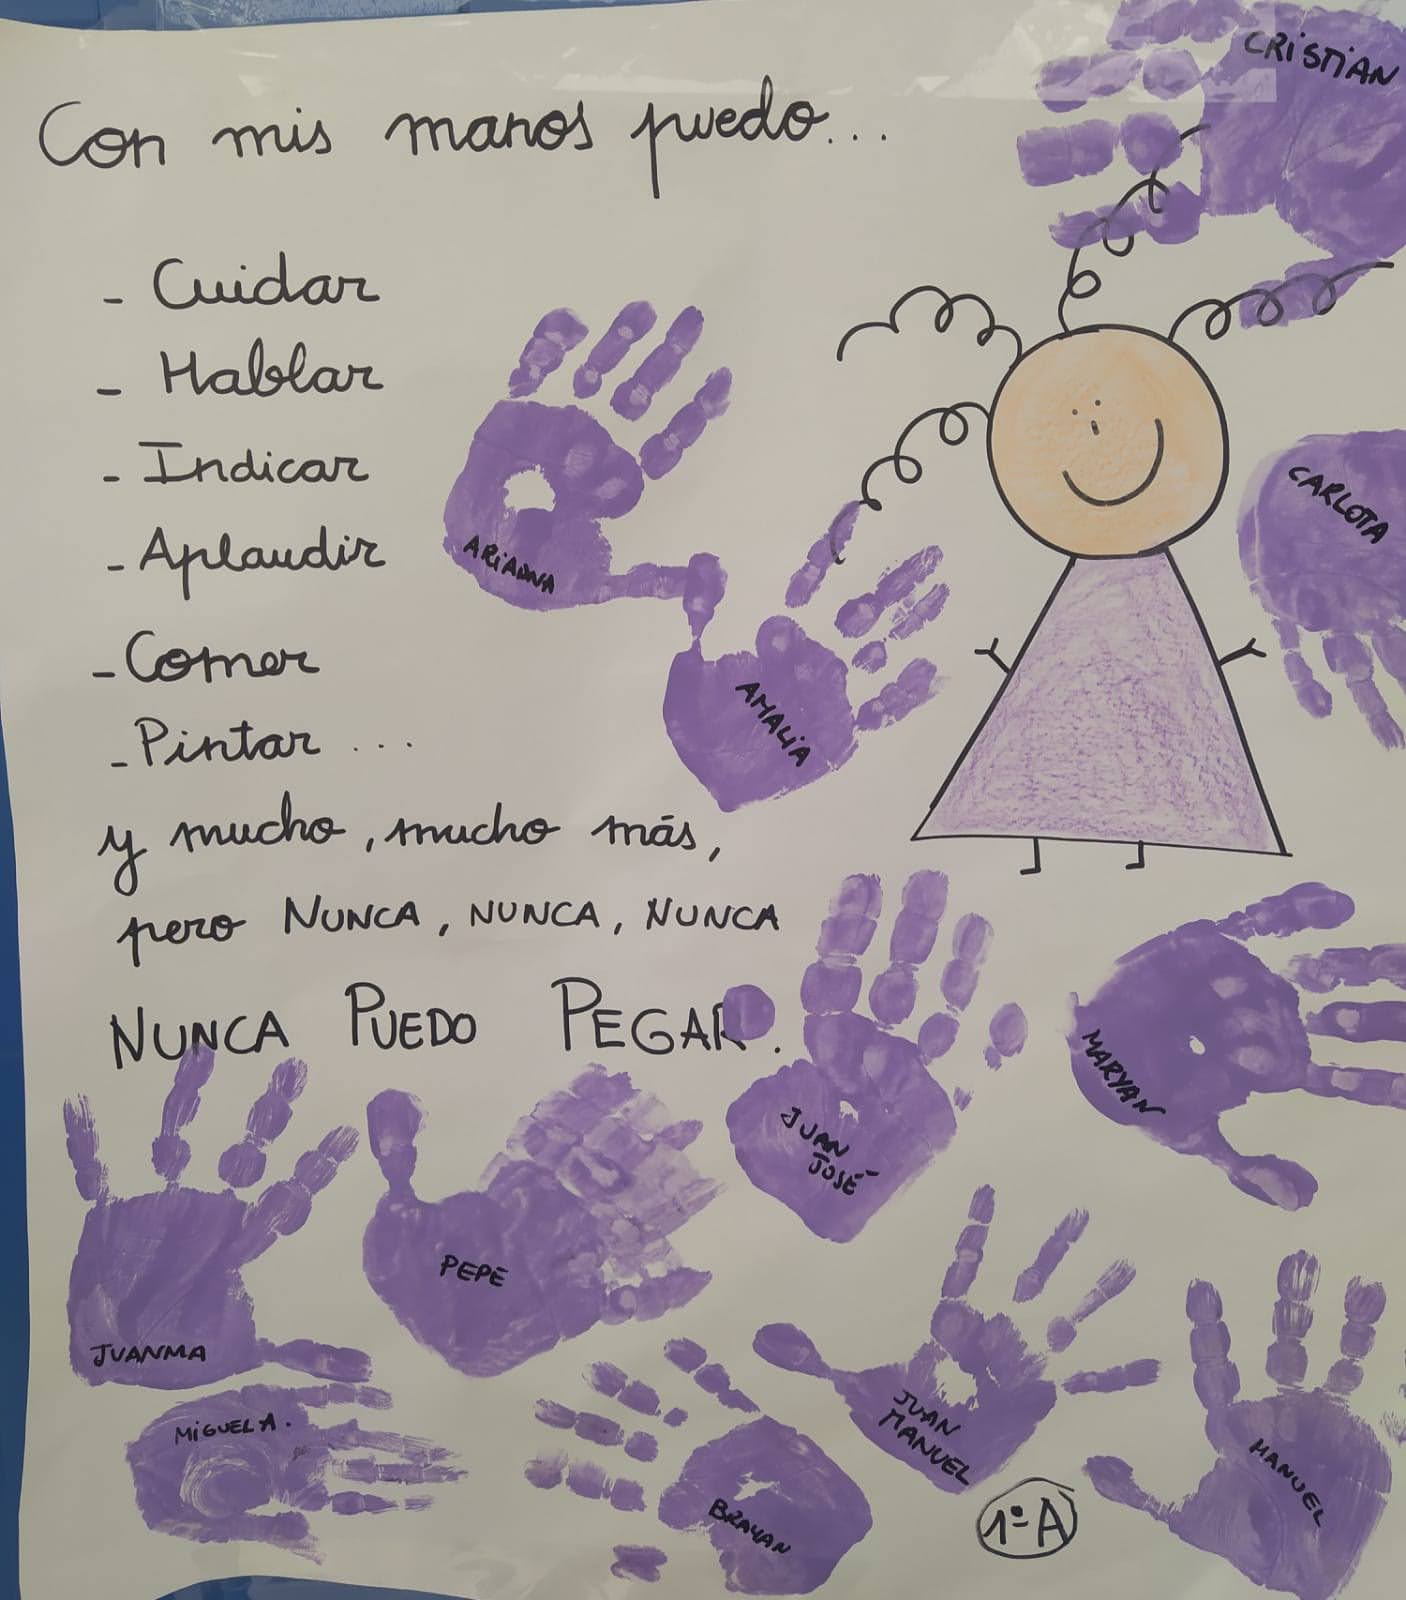 Con mis manos puedo...
- Cuidar
- Hablar
- Indicar
- Aplaudir
- Comer
- Pintar ...
y mucho, mucho más,
pero NUNCA, NUNCA, NUNCA
NUNCA PUEDO PEGAR.
CRISTIAN
CARLOTA
ARIADNA
AMALIA
MARYAN
JUAN
JOSÉ
PEPE
JUANMA
MIGUEL A.
BRAYAN
JUAN
MANUEL
MANUEL
1º A